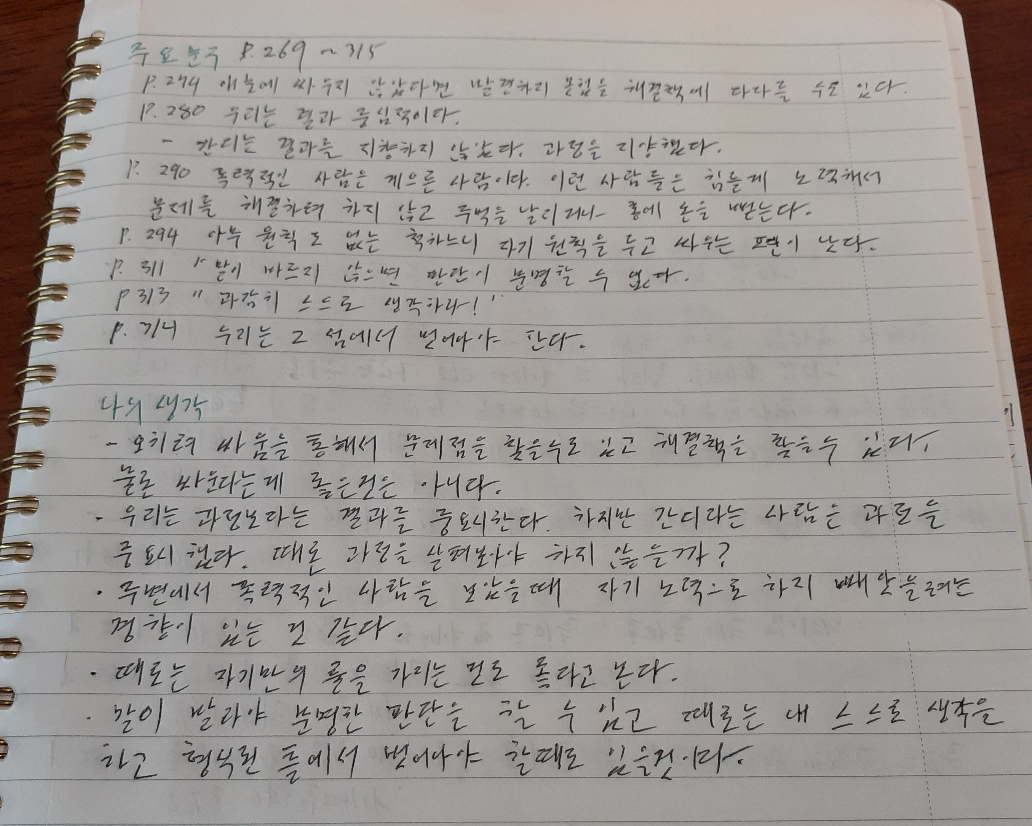 주요문구 P.269 ~ 315
P.274 애초에 싸우지 않았다면 발견하지 못했을 해결책에 다다를 수도 있다.
P.280 우리는 결과 중심적이다.
- 간디는 결과를 지향하지 않았다. 과정을 지향했다.
P.290 폭력적인 사람은 게으른 사람이다. 이런 사람들은 힘들게 노력해서
문제를 해결하려 하지 않고 주먹을 날리거나 총에 손을 뻗는다.
P.294 아무 원칙도 없는 척하느니 자기 원칙을 두고 싸우는 편이 낫다.
P.311 "말이 바르지 않으면 판단이 분명할 수 없다.
P313 "과감히 스스로 생각하라!"
P.314 우리는 그 섬에서 벗어나야 한다.
나의 생각
- 오히려 싸움을 통해서 문제점을 찾을수도 있고 해결책을 찾을수 있다.
물론 싸운다는게 좋은것은 아니다.
· 우리는 과정보다는 결과를 중요시한다. 하지만 간디라는 사람은 과정을
중요시 했다. 때론 과정을 살펴보아야 하지 않을까?
· 주변에서 폭력적인 사람을 보았을때 자기 노력으로 하지 빼앗을려는
경향이 있는 것 같다.
· 때로는 자기만의 룰을 가지는 것도 좋다고 본다.
· 말이 발라야 분명한 판단을 할 수 있고 때로는 내 스스로 생각을
하고 형식된 틀에서 벗어나야 할때도 있을것이다.